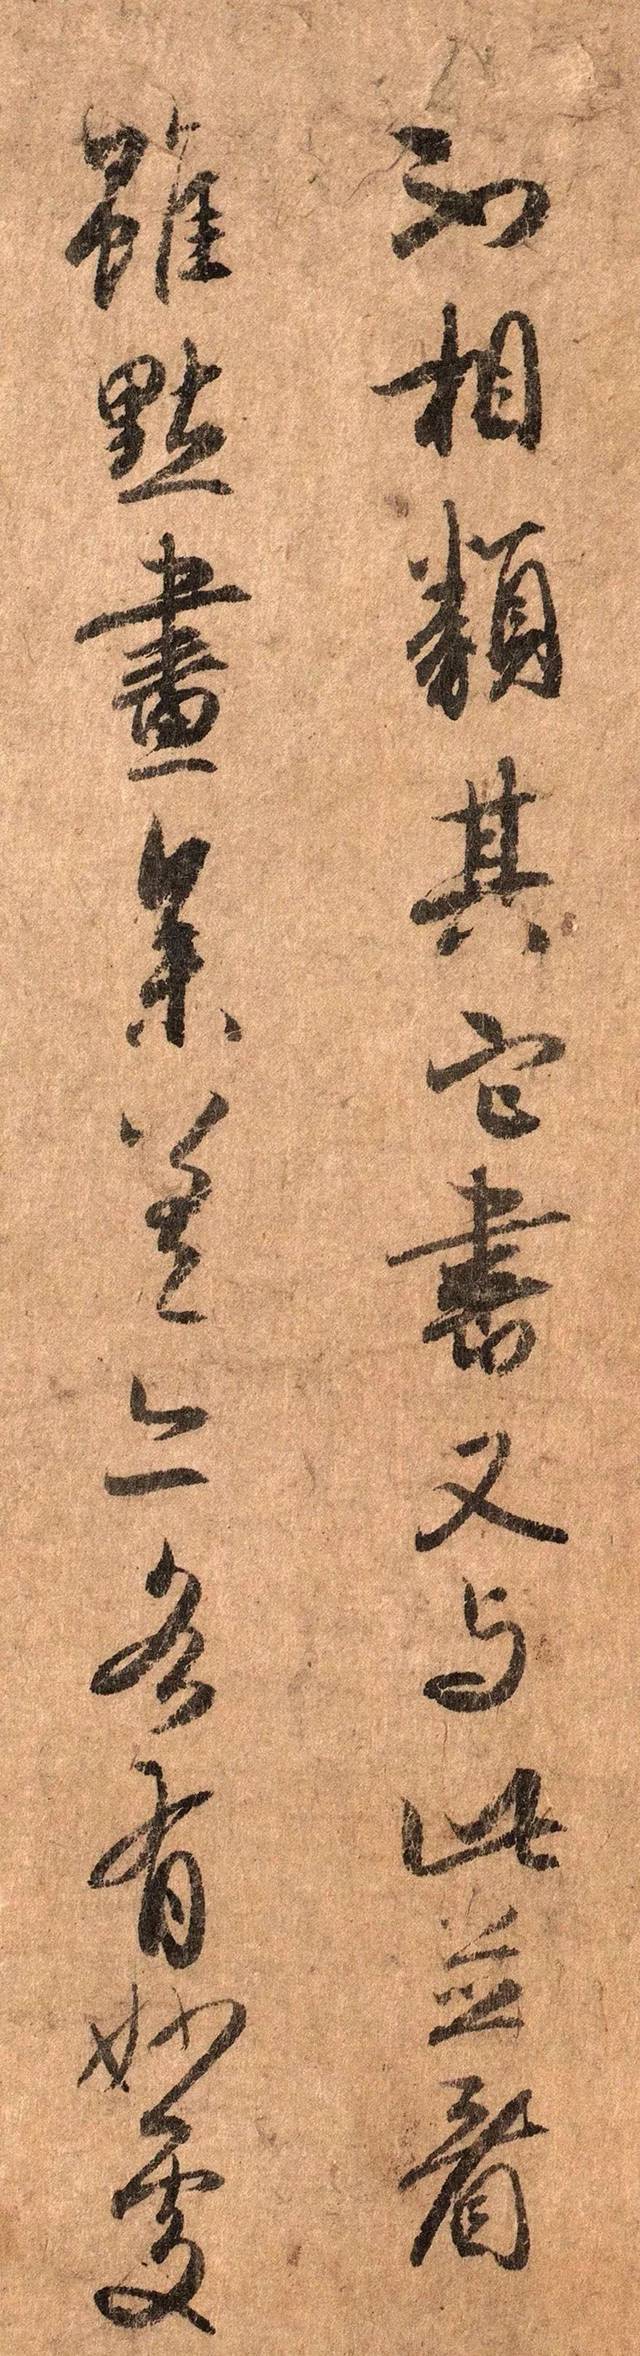 不相類其它書又与此並看
雖點畫參差亦各有妙處